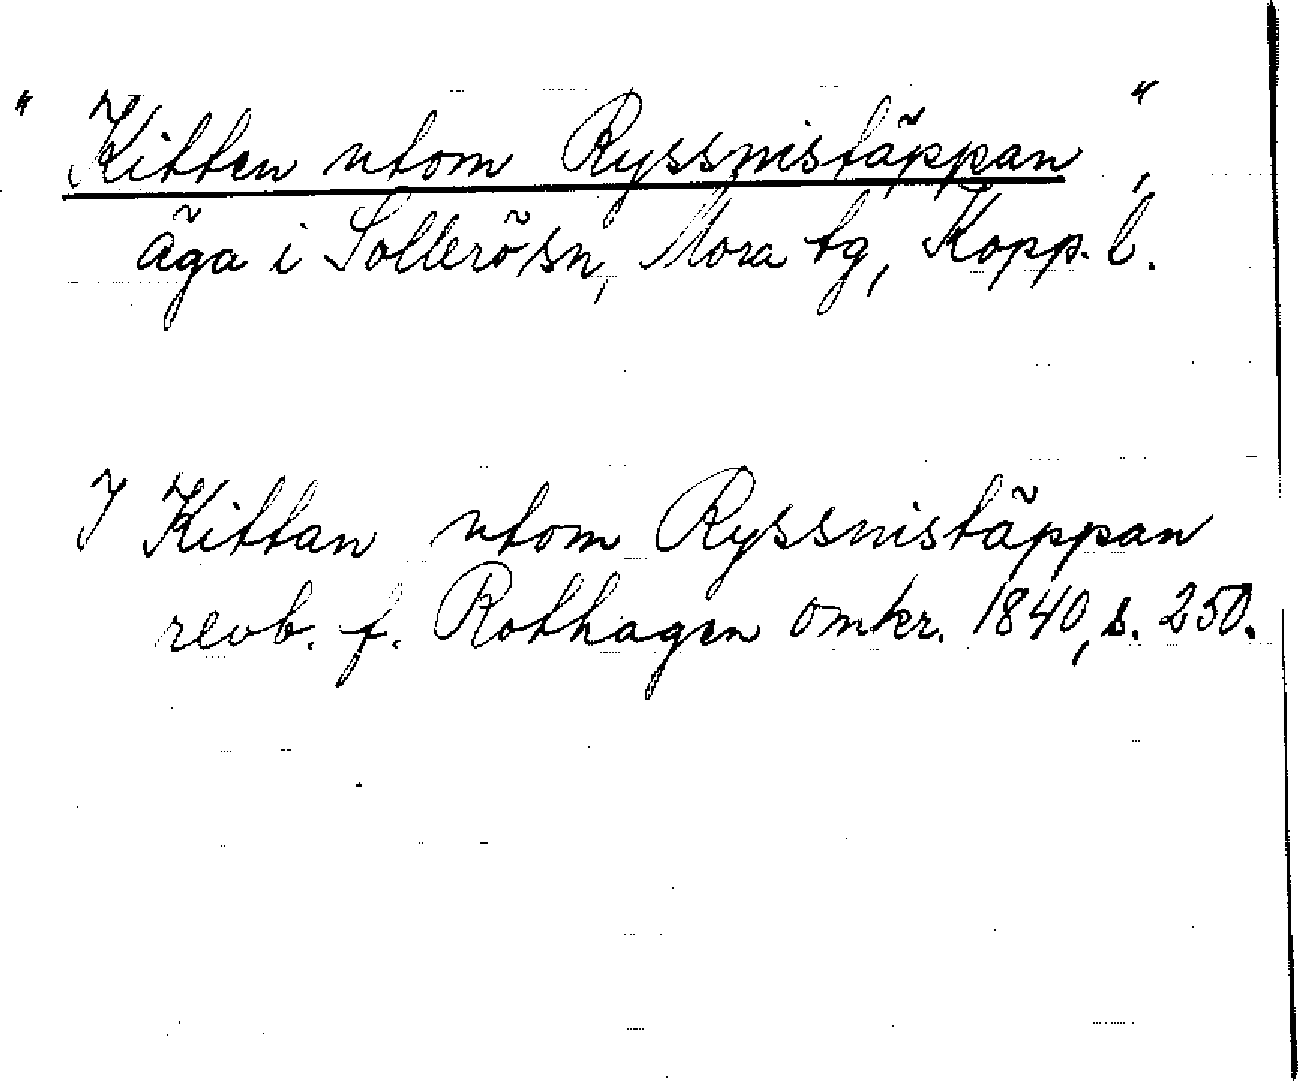 "Kitten utom Ryssnistäppan",
äga i Sollerö sn, Mora tg, Kopp. l.
I Kittan utom Ryssnistäppan
revb. f. Rothagen omkr. 1840, s. 250.